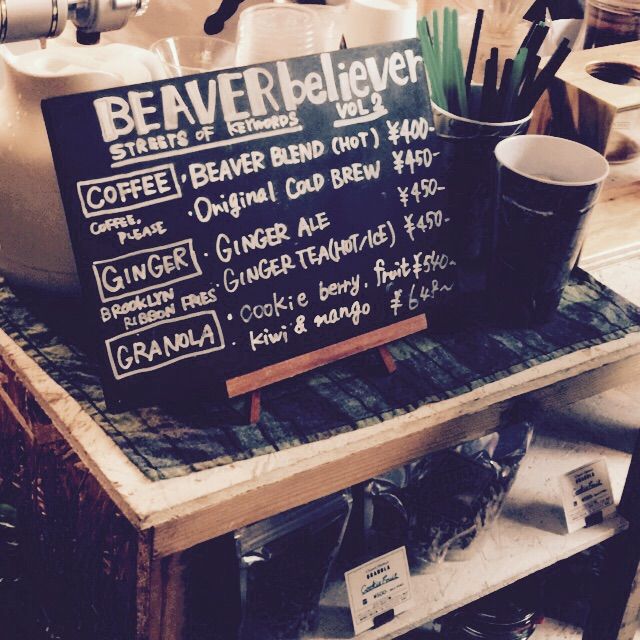 BEAVER believer
STREETS OF KEYWORDS VOL.2
COFFEE · BEAVER BLEND (HOT) ¥400-
COFFEE, PLEASE · Original COLD BREW ¥450-
GINGER · GINGER ALE ¥450-
BROOKLYN RIBBON FRIES · GINGER TEA (HOT/ICE) ¥450-
GRANOLA · cookie berry, fruit ¥540-
· kiwi & mango ¥648-
Cookie Fruit